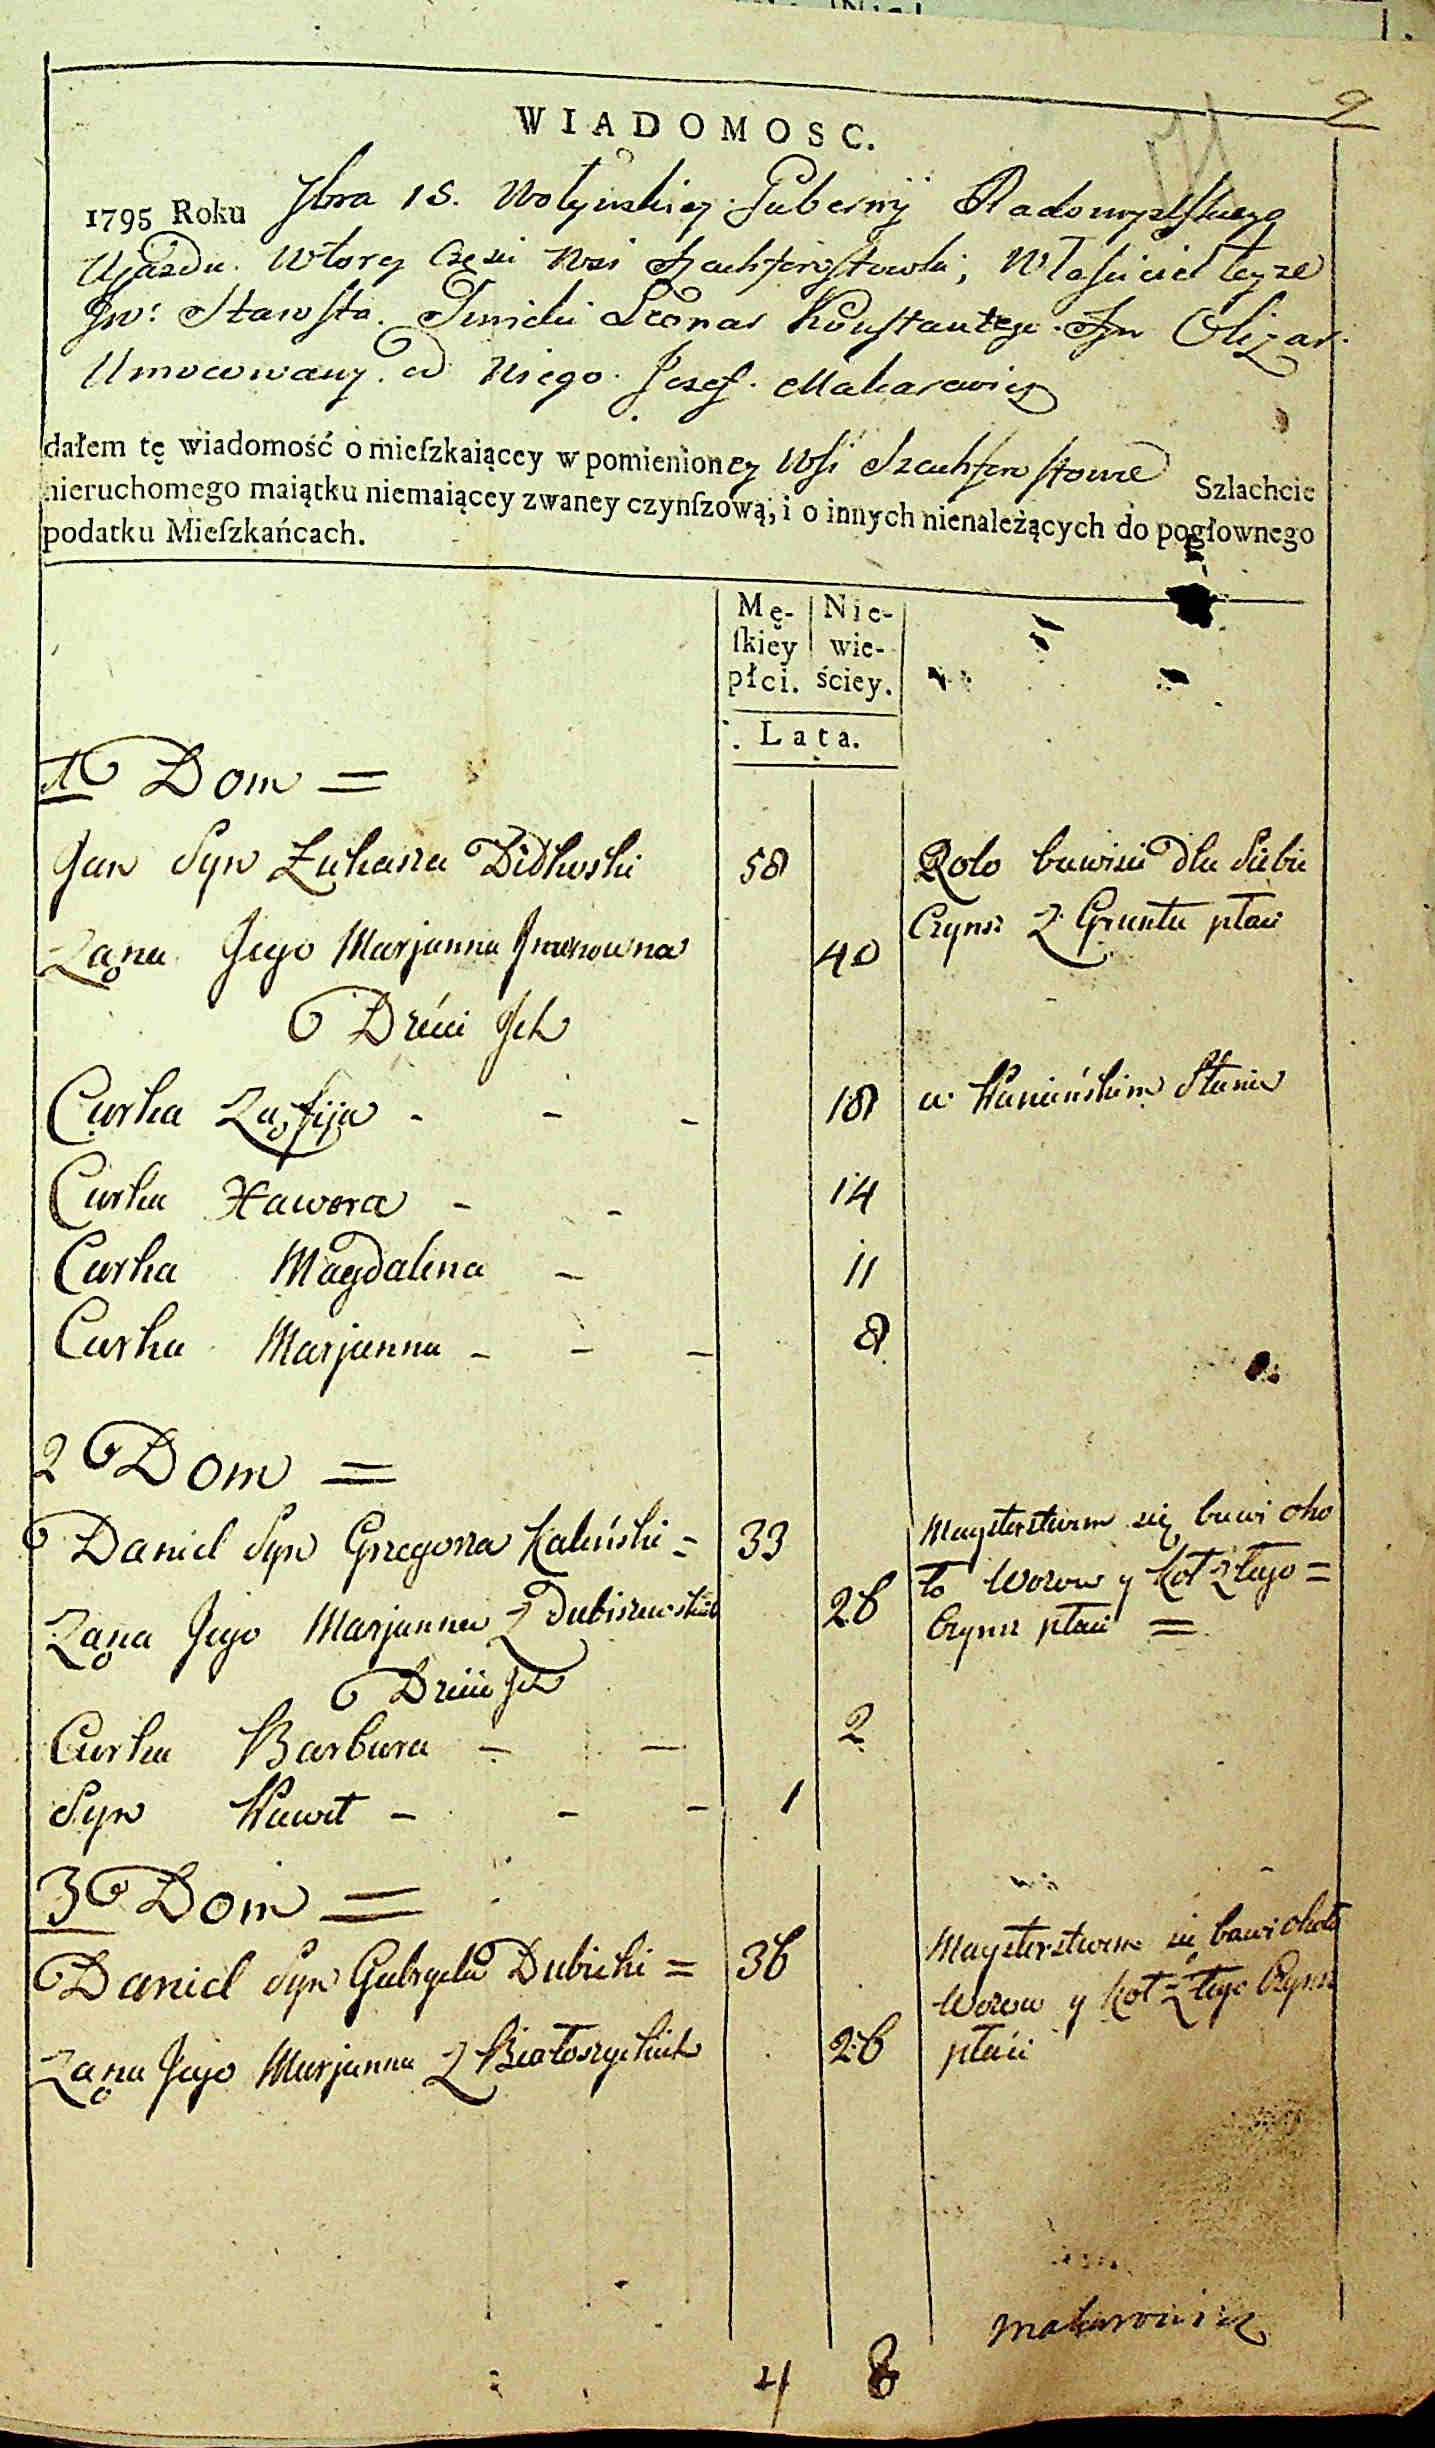 9
WIADOMOSC.
1795 Roku Jbra 15. Wołyńskiey Gubernij Radomyslskiego
Ujazdu. Wtorey Częsci Wsi Właściciel teyże
Jw: Starosta. Leonar Konstantego Syn Olizar.
Umocowany. od Niego. Jozef. Makarewicz
dałem tę wiadomość o mieſzkaiącey w pomienioney Wsi Szlachcie
nieruchomego maiątku niemaiącey zwaney czynſzową, i o innych nienależących do pogłownego
podatku Mieſzkańcach.
Mę- Nie-
ſkiey wie-
płci. ściey.
Lata.
1 Dom =
Jan Syn Łukasza Didkoski 58 Rolo bawisie dla Siebie
Żona Jego Marjanna 40 Czynsz z Gruntu płaci
Dzieci Jch
Curka Zofija - - - 18 w Stanie
Curka Xawera - - 14
Curka Magdalena - 11
Curka Marjanna - - - 8
2 Dom =
Daniel Syn Grzegorza Kaliński = 33 Maysterstwem się bawi oko
Żona Jego Marjanna Z Dubiszewskich 26 ło Worow y Kot Z tego =
Czynsz płaci =
Dzieci Jch
Curka Barbara - - 2
Syn Paweł - - - 1
3 Dom =
Daniel Syn Gabryela Dubicki = 36 Maysterstwem sie bawi około
Worow y Kot Z tego Czynsz
Żona Jego Marjanna Z Białoszyckich 26 płaci
Makarewicz
4 8